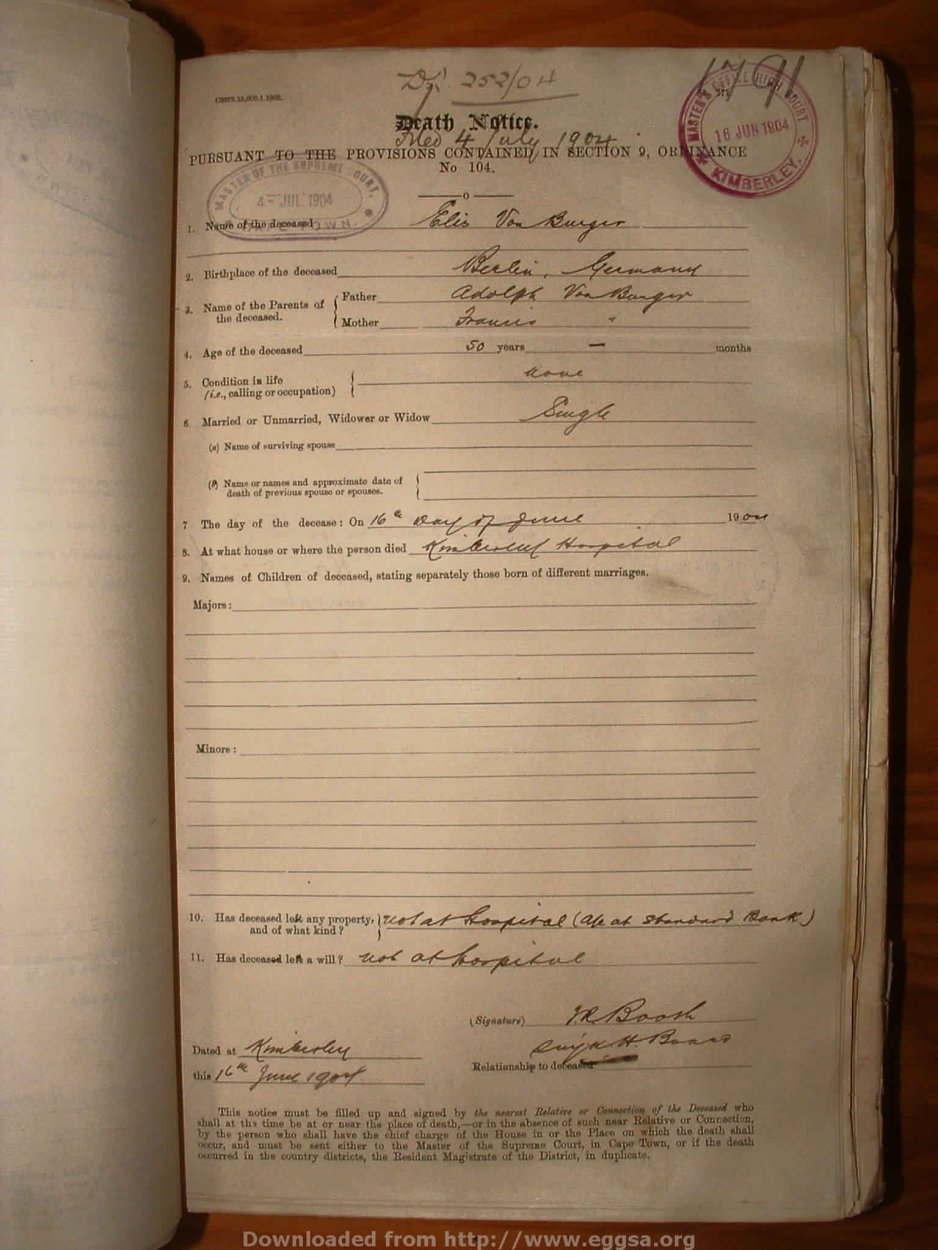 252/04
1791
Death Notice.
Filed 4 July 1904
PURSUANT TO THE PROVISIONS CONTAINED IN SECTION 9, ORDINANCE
No 104.
MASTER'S OFFICE HIGH COURT
16 JUN 1904
KIMBERLEY.
MASTER OF THE SUPREME COURT,
4 - JUL 1904
CAPE TOWN.
1. Name of the deceased Elis Von Burger
2. Birthplace of the deceased Berlin, Germany
3. Name of the Parents of the deceased. Father Adolph Von Burger
Mother Francis "
4. Age of the deceased 50 years — months
5. Condition in life (i.e., calling or occupation) none
6 Married or Unmarried, Widower or Widow Single
(a) Name of surviving spouse
(b) Name or names and approximate date of death of previous spouse or spouses.
7 The day of the decease: On 16th day of June 1904
8. At what house or where the person died Kimberley Hospital
9. Names of Children of deceased, stating separately those born of different marriages.
Majors:
Minors:
10. Has deceased left any property, and of what kind? not at hospital (a/c at Standard Bank)
11. Has deceased left a will? not at hospital
(Signature)
Dated at Kimberley
Relationship to deceased
this 16th June 1904
This notice must be filled up and signed by the nearest Relative or Connection of the Deceased who
shall at the time be at or near the place of death,—or in the absence of such near Relative or Connection,
by the person who shall have the chief charge of the House in or the Place on which the death shall
occur, and must be sent either to the Master of the Supreme Court, in Cape Town, or if the death
occurred in the country districts, the Resident Magistrate of the District, in duplicate.
Downloaded from http://www.eggsa.org